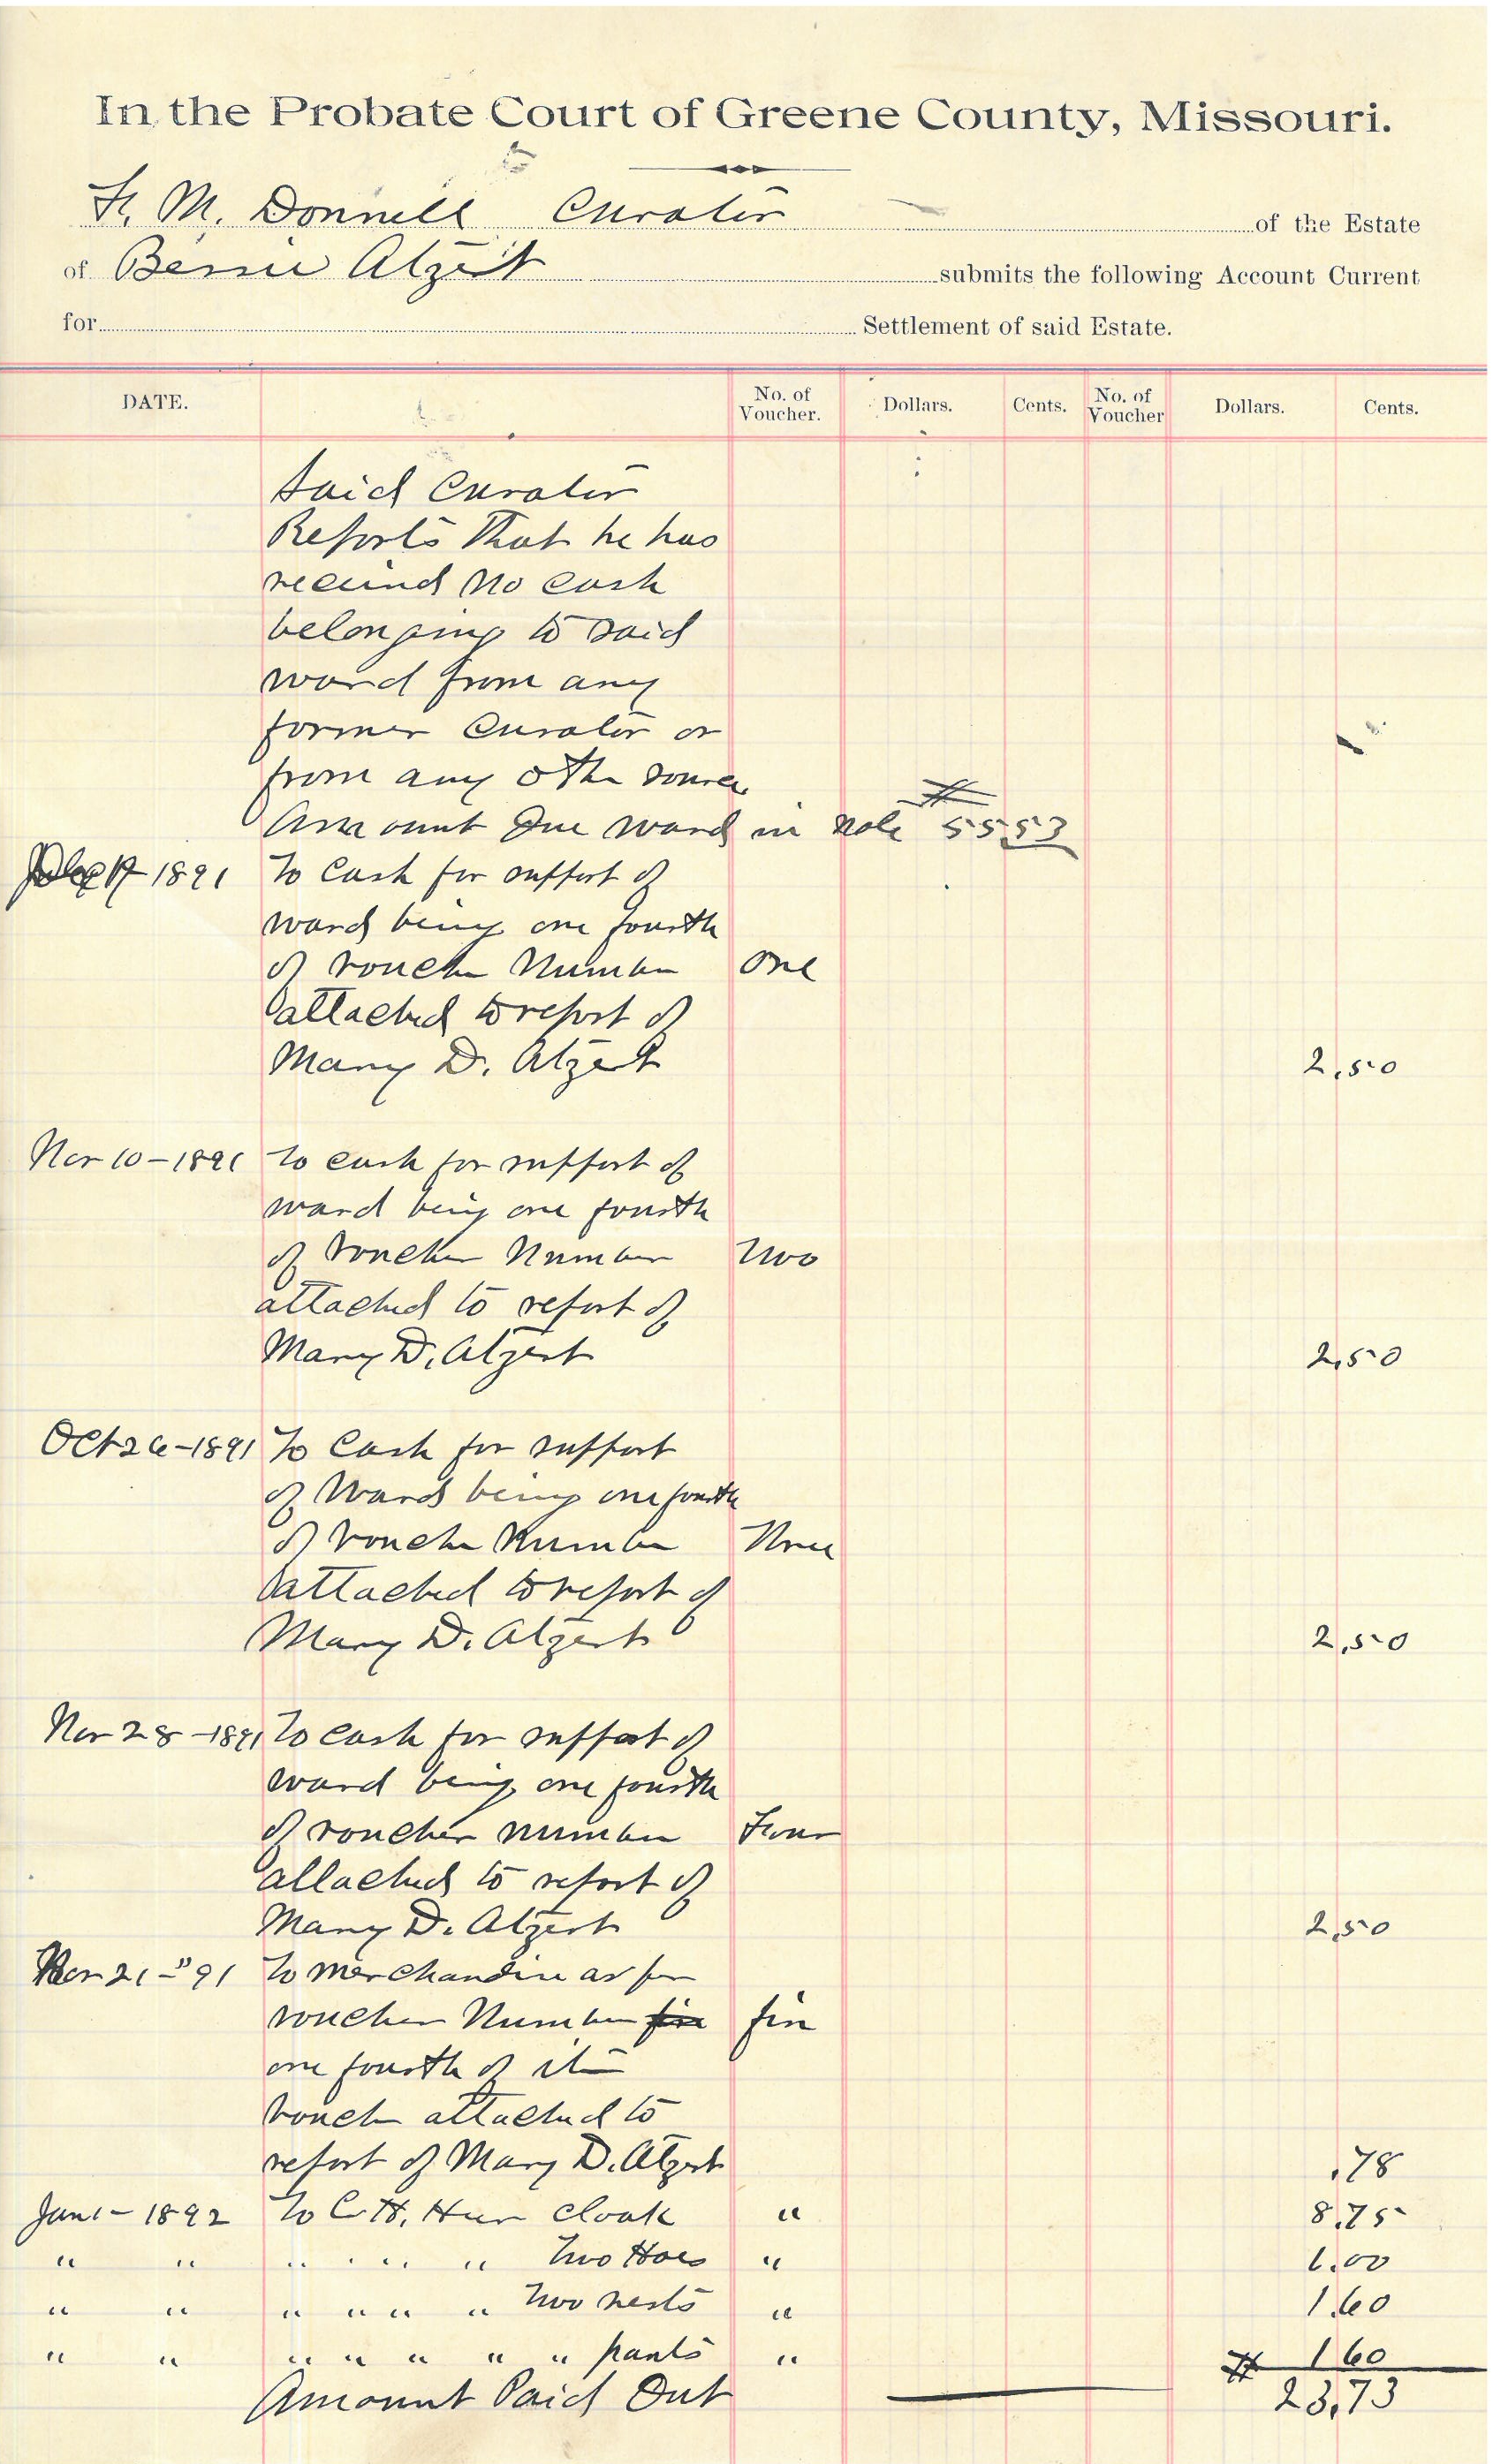 In the Probate Court of Greene County, Missouri.
F. M. Donnell Curator of the Estate
of Bessie Atzert submits the following Account Current
for Settlement of said Estate.
DATE. No. of Voucher. Dollars. Cents. No. of Voucher Dollars. Cents.
Said Curator
Reports That he has
received no cash
belonging to said
ward from any
former Curator or
from any other source
Amount Due ward in note $ 55 53
1891 To Cash for support of
ward being one fourth
of voucher Number One
attached to report of
Mary D. Atzert 2.50
Nov 10-1891 To cash for support of
ward being one fourth
of voucher Number Two
attached to report of
Mary D. Atzert 2.50
Oct 26-1891 To Cash for support
of Ward being one fourth
of voucher Number Three
attached to report of
Mary D. Atzert 2.50
Nov 28-1891 To cash for support of
ward being one fourth
of voucher number Four
attached to report of
Mary D. Atzert 2.50
Nov 21-"91 To Merchandise as per
voucher Number five five
one fourth of it
voucher attached to
report of Mary D. Atzert .78
Jan 1- 1892 To C. H. Heer cloak " 8.75
" " " " " " Two Hose " 1.00
" " " " " " Two vests " 1.60
" " " " " " " pants " 1 60
Amount Paid Out $ 23.73